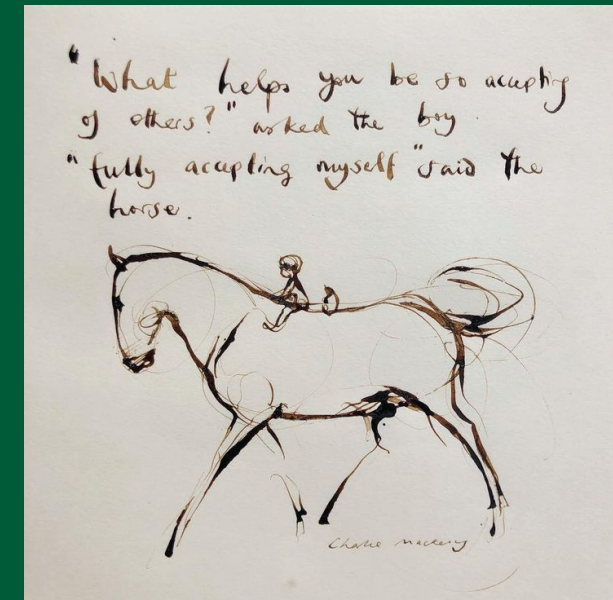 "What helps you be so accepting
of others?" asked the boy
"fully accepting myself" said the
horse.
Charlie Mackesy